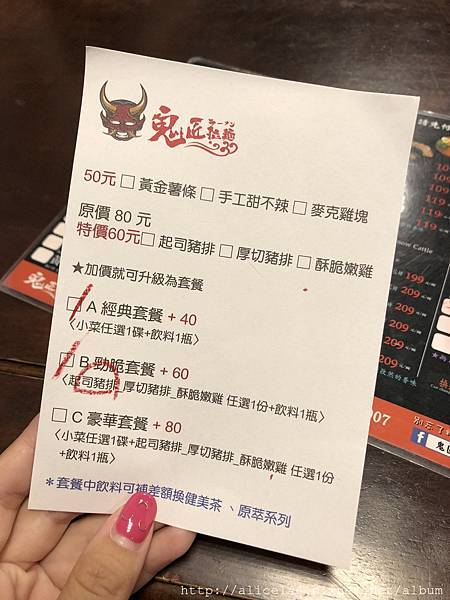 鬼匠拉麵
ラーメン
50元 □ 黃金薯條 □ 手工甜不辣 □ 麥克雞塊
原價 80 元
特價60元 □ 起司豬排 □ 厚切豬排 □ 酥脆嫩雞
★加價就可升級為套餐
□ A 經典套餐 + 40
〈小菜任選1碟+飲料1瓶〉
□ B 勁脆套餐 + 60
〈起司豬排_厚切豬排_酥脆嫩雞 任選1份+飲料1瓶〉
□ C 豪華套餐 + 80
〈小菜任選1碟+起司豬排_厚切豬排_酥脆嫩雞 任選1份
+飲料1瓶〉
＊套餐中飲料可補差額換健美茶、原萃系列
109
119
119
199
209
209
209
209
007
別忘了
鬼匠